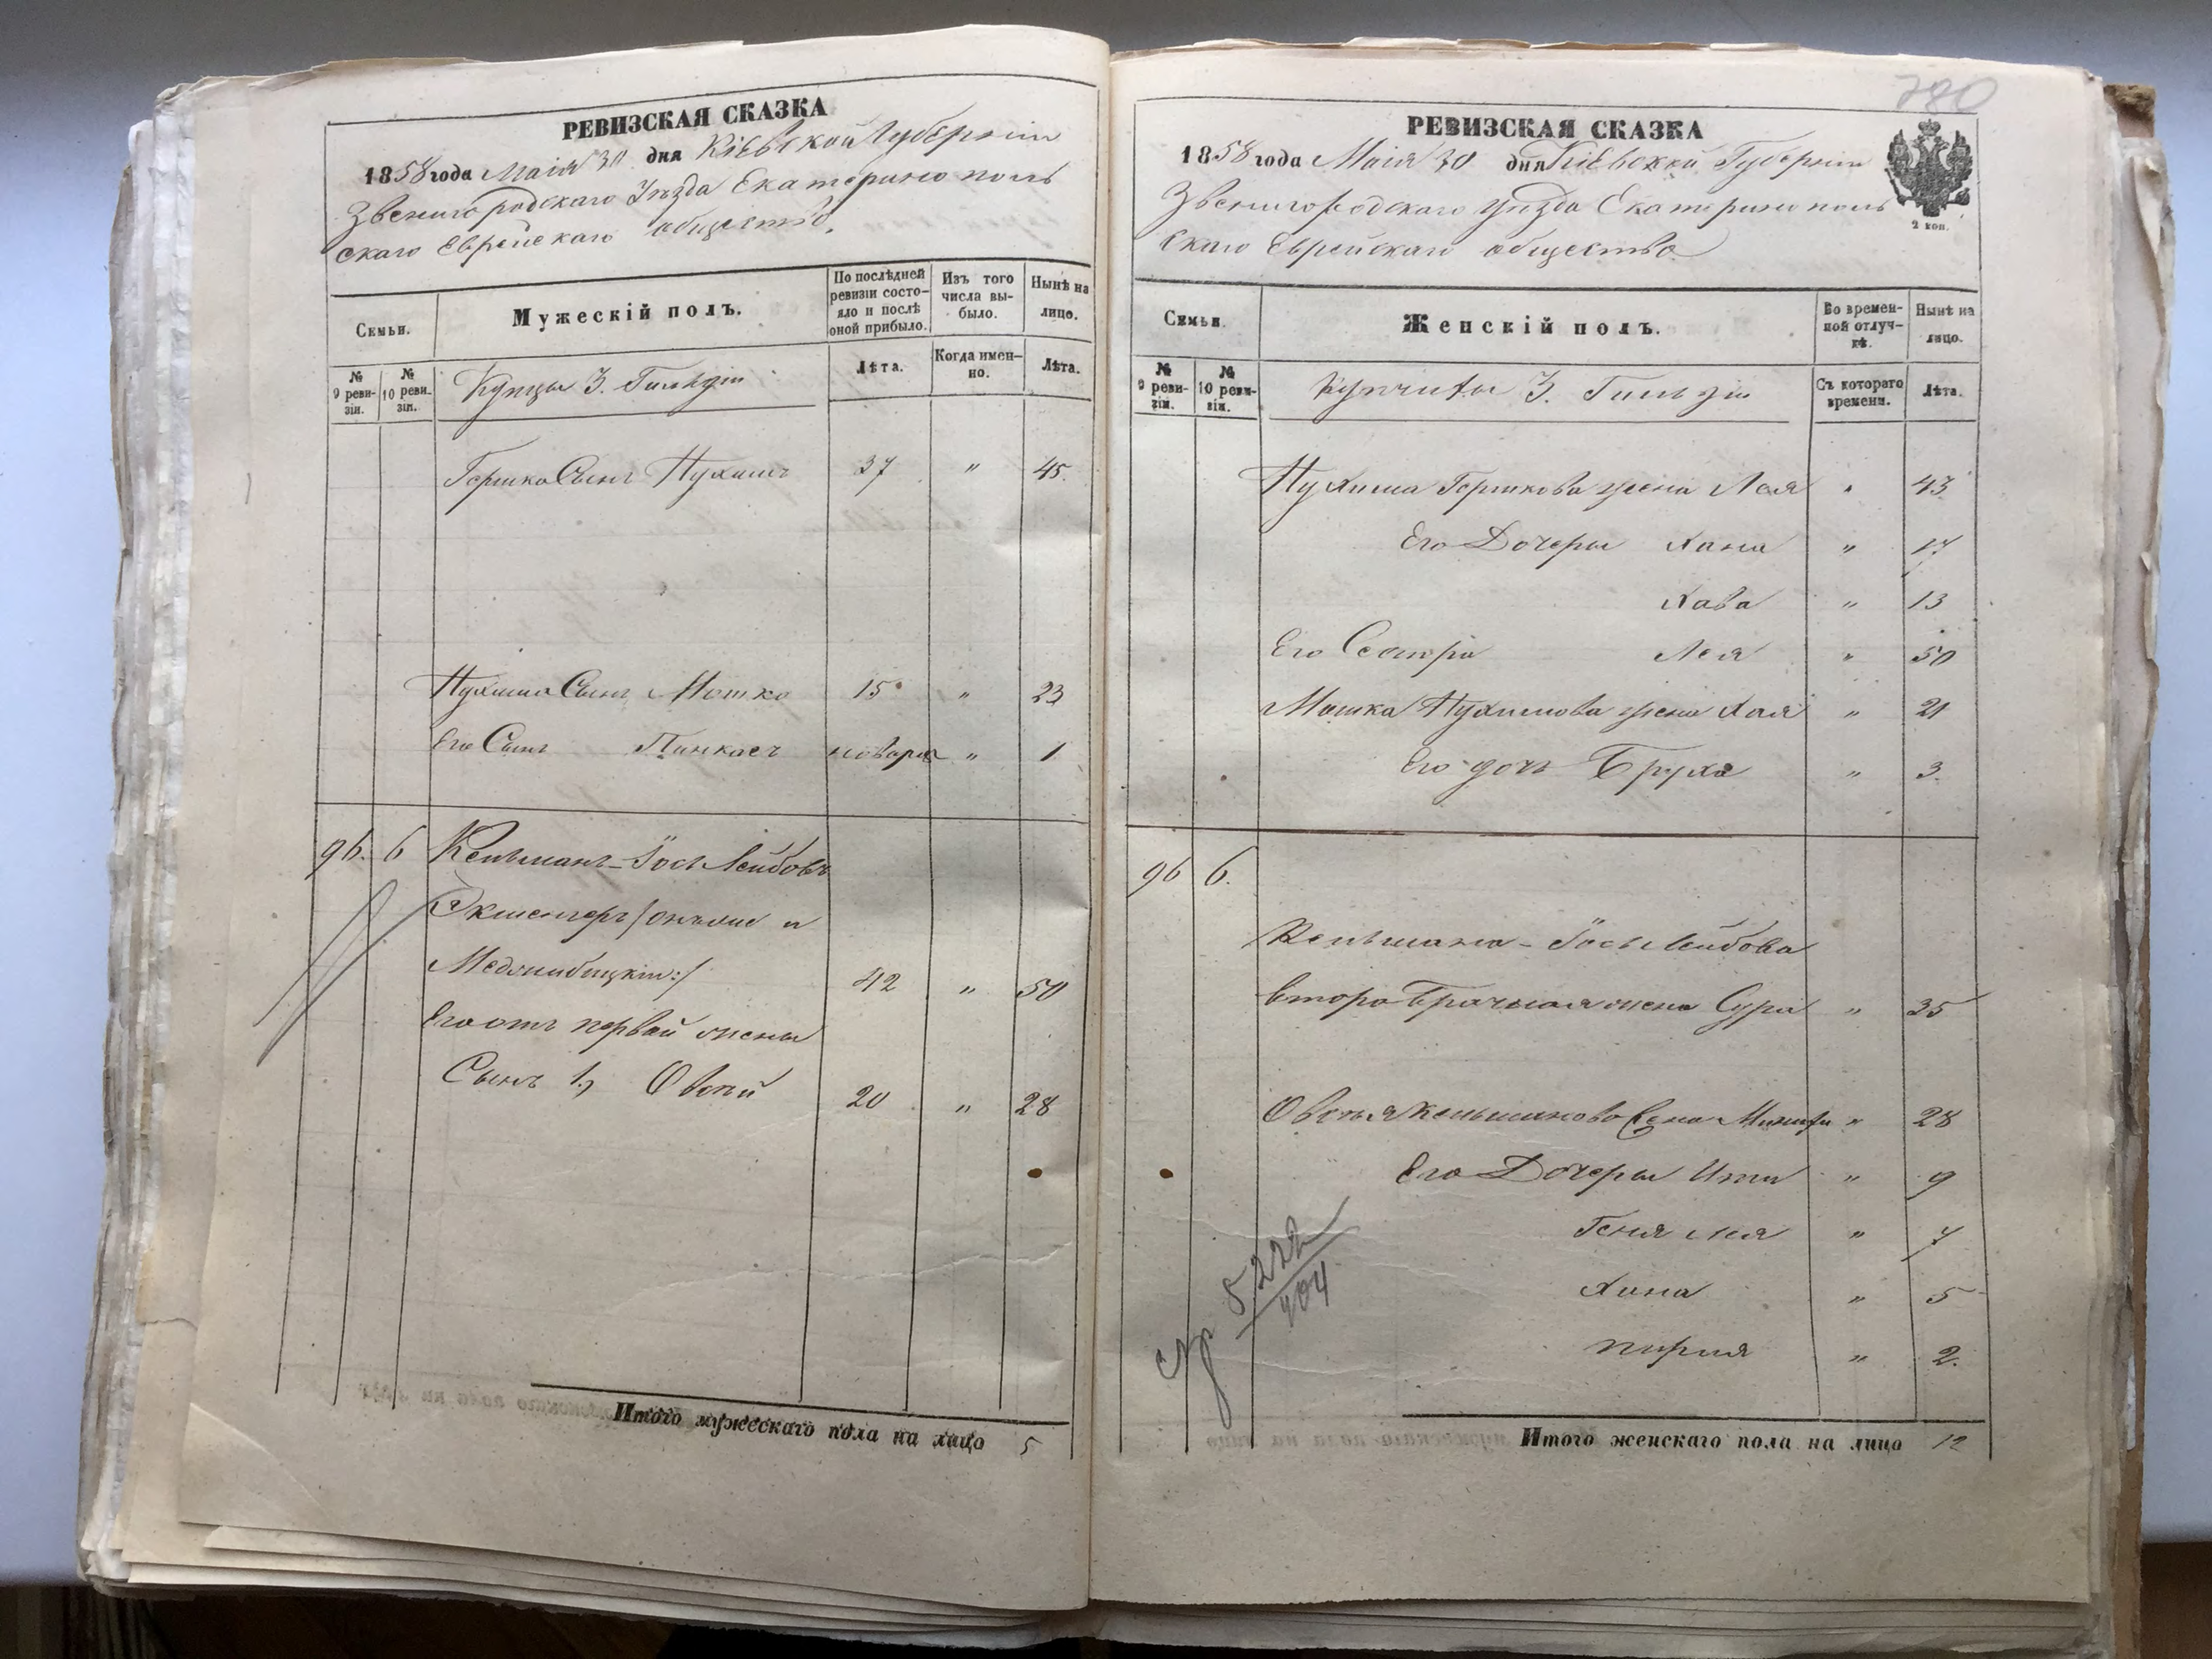 РЕВИЗСКАЯ СКАЗКА
1858 года Маія 30 дня Кіевской Губерніи
Звенигородскаго Уѣзда Екатеринополь
скаго Еврейскаго общества.
Семьи.
Мужескій полъ.
По послѣдней ревизіи состояло и послѣ оной прибыло.
Изъ того числа выбыло.
Нынѣ на лицо.
№ 9 ревизіи.
№ 10 ревизіи.
Купцы 3. Гильдіи
Лѣта.
Когда именно.
Лѣта.
Гершка Сынъ Нухимъ 37 " 45.
Нухима Сынъ Мошко 15 " 23
Его Сынъ Пинкасъ новорож " 1
96. 6 Кельманъ-Іось Лейбовъ
Экшенгеръ /онъ же и
Меджибицкій:/ 42 " 50
Его отъ первой жены
Сынъ 1., Овсѣй 20 " 28
Итого мужескаго пола на лицо 5
780
РЕВИЗСКАЯ СКАЗКА
1858 года Маія 30 дня Кіевской Губерніи
Звенигородскаго Уѣзда Екатеринополь
скаго Еврейскаго общества
2 коп.
Семьи.
Женскій полъ.
Во временной отлучкѣ.
Нынѣ на лицо.
№ 9 ревизіи.
№ 10 ревизіи.
Купчихи 3. Гильдіи
Съ котораго времени.
Лѣта.
Нухима Гершкова жена Лея " 43
Его Дочеры Хана " 17
Хава " 13
Его Сестра Лея " 50
Мошка Нухимова жена Хая " 21
Его дочь Бруха " 3.
96 6.
Кельмана-Іось Лейбова
второбрачная жена Сура " 35
Овсѣя Кельманова жена " 28
Его Дочеры Ити " 9
Геня Лея " 7
Хана " 5
Пирля " 2.
ср 5222
404
Итого женскаго пола на лицо 12